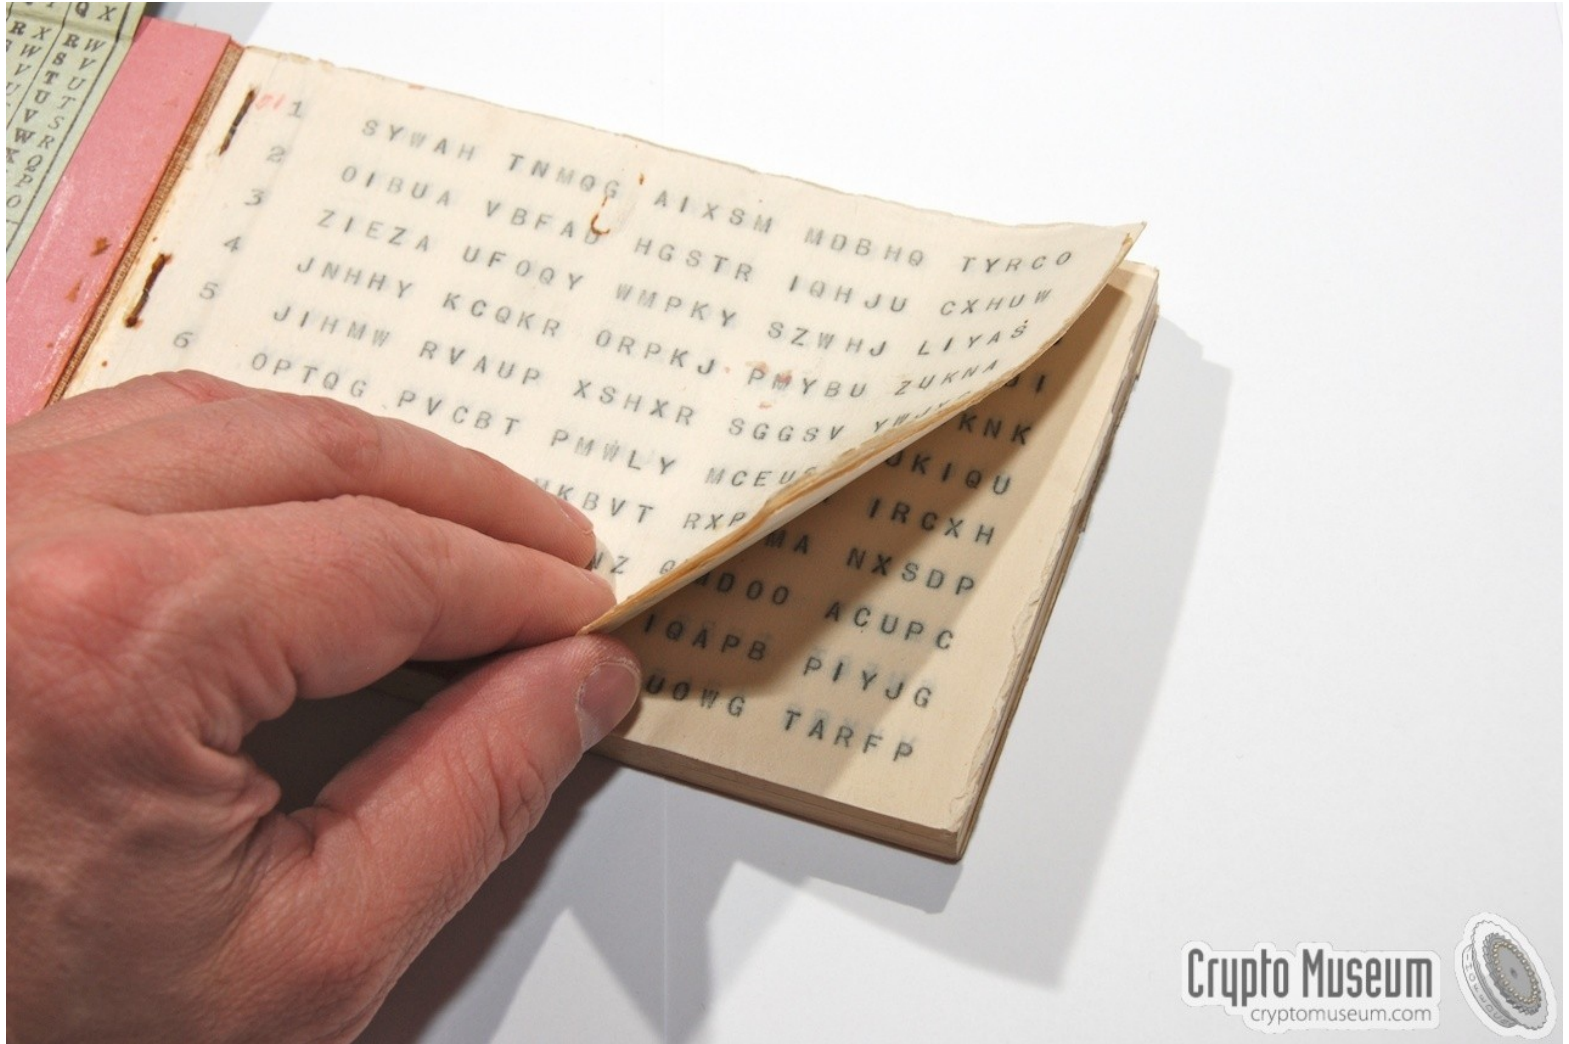 Q X
R X R W
W S V
V T U
U U T
V S
W R
X Q
P
O
1 SYWAH TNMQG AIXSM MDBHQ TYRCO
2 OIBUA VBFAD HGSTR IQHJU CXHUW
3 ZIEZA UFOQY WMPKY SZWHJ LIYAS
4 JNHHY KCQKR ORPKJ PMYBU ZUKNA
5 JIHMW RVAUP XSHXR SGGSV
6 OPTQG PVCBT PMWLY
KBVT
NZ
KNK
KIQU
IRCXH
MA NXSDP
DOO ACUPC
IQAPB PIYJG
UOWG TARFP
Crypto Museum
cryptomuseum.com